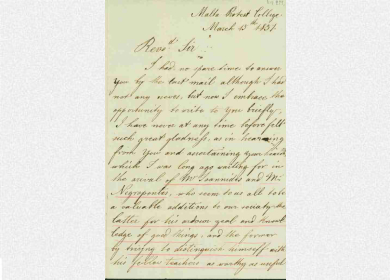 Malta Protest. College.
March 15th 1851.
Revd. Sir
I had no spare time to answer
You by the last mail although I had
not any news, but now I embrace the
opportunity to write to you briefly.
I have never at any time before felt
such great gladness, as in learning
from You and ascertaining your
which I was long ago waiting for in
the arrival of Mr Ioannides and Mr
Negropontes, who seem to us all to be
a valuable additions to our society the
latter for his known zeal and know
ledge of good things, and the former
by trying to distinguish himself with
his fellow teachers as worthy as useful